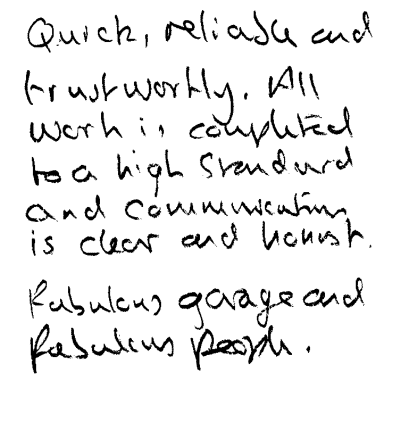 Quick, reliable and
trustworthy. All
work is completed
to a high standard
and communication
is clear and honest.
Fabulous garage and
fabulous people.